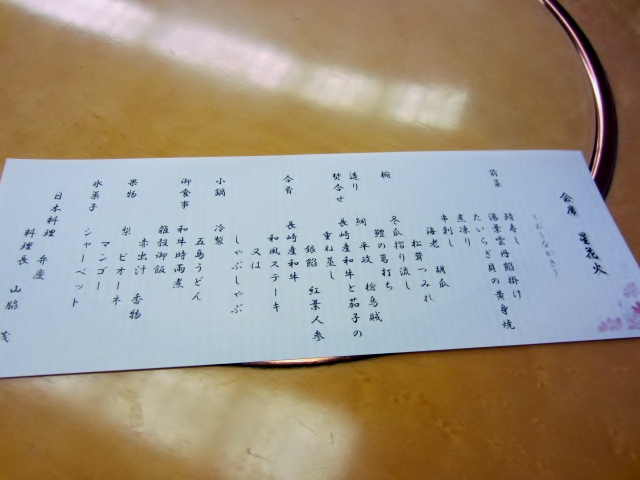 会席 星花火
～おしながき～
前菜 鯖寿し
湯葉雲丹餡掛け
たいらぎ貝の黄身焼
煮凍り
串刺し
海老 胡瓜
松茸つみれ
椀 冬瓜摺り流し
鱧の葛打ち
造り 鯛 平政 槍烏賊
焚合せ 長崎産和牛と茄子の
重ね蒸し
銀餡 紅葉人参
合肴 長崎産和牛
和風ステーキ
又は
しゃぶしゃぶ
小鍋 冷製
五島うどん
御食事 和牛時雨煮
雑穀御飯
赤出汁 香物
果物 梨 ピオーネ
マンゴー
氷菓子 シャーベット
日本料理 弁慶
料理長 山脇 茂